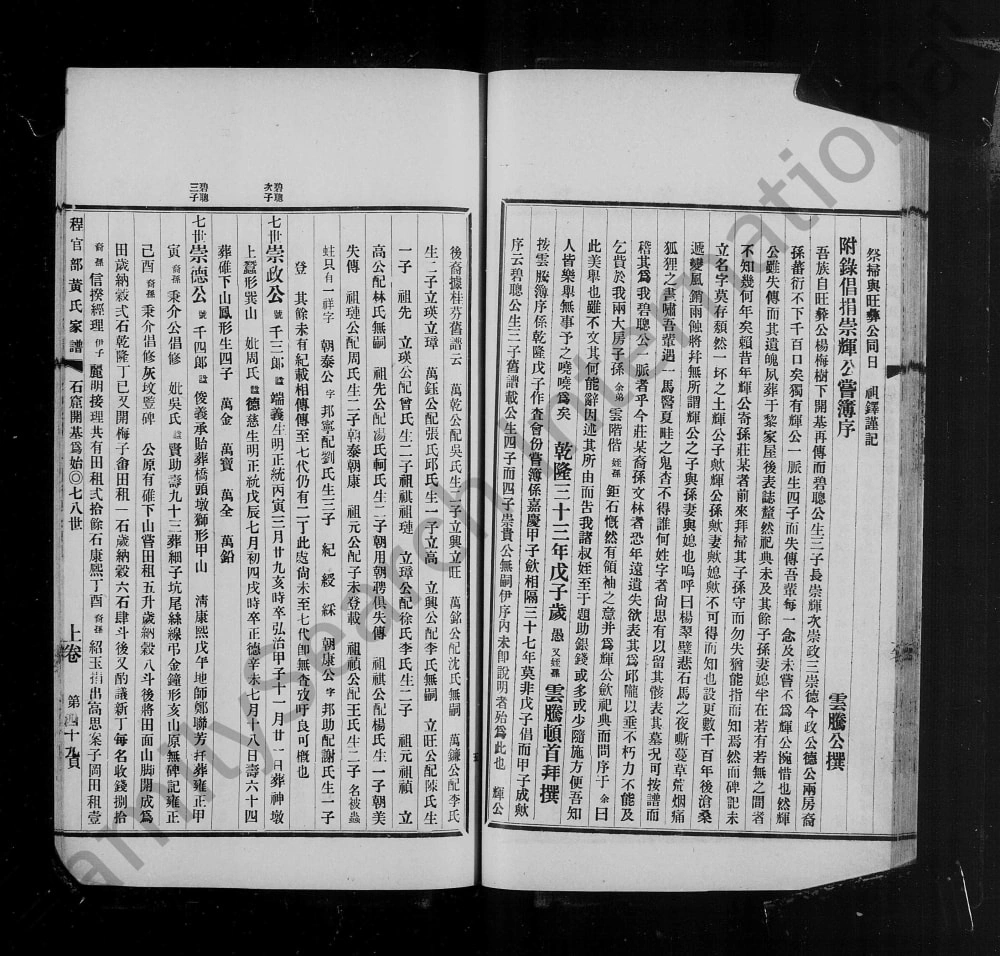 祭掃與旺彝公同日　祖鐸謹記
附錄倡捐崇輝公嘗簿序　雲騰公撰
吾族自旺彝公楊梅樹下開基再傳而碧聰公生三子長崇輝次崇政三崇德今政公德公兩房裔
孫蕃衍不下千百口矣獨有輝公一脈生四子而失傳吾輩每一念及未嘗不為輝公惋惜也然輝
公雖失傳而其遺魄夙葬于黎家屋後表誌釐然祀典未及其餘子孫妻媳半在若有若無之間者
不知幾何年矣賴昔年輝公寄孫莊某者前來拜掃其子孫守而勿失猶能指而知焉然而碑記未
立名字莫存頹然一坏之土輝公子歟輝公孫歟妻歟媳歟不可得而知也設更數千百年後滄桑
遞變風銷雨蝕將幷無所謂輝公之子與孫妻與媳也嗚呼曰楊翠璧悲石馬之夜嘶蔓草荒烟痛
狐狸之晝嘯吾輩遇一馬醫夏畦之鬼杳不得誰何姓字者尙思有以留其骸表其墓况可按譜而
稽其為我碧聰公一脈者乎今莊某裔孫文林者恐年遠遺失欲表其為邱隴以垂不朽力不能及
乞貲於我兩大房子孫余弟雲階偕姪孫鉅石慨然有領袖之意幷為輝公歛祀典而問序于余曰
此美舉也雖不文其何能辭因述其所由而告我諸叔姪至于題助銀錢或多或少隨施方便吾知
人皆樂舉無事予之嘵嘵為矣　乾隆三十三年戊子歲　愚又姪孫雲騰頓首拜撰
按雲騰簿序係乾隆戊子作査會份嘗簿係嘉慶甲子歛相隔三十七年莫非戊子倡而甲子成歟
序云碧聰公生三子舊譜載公生四子而四子崇貴公無嗣伊序內未卽說明者殆為此也　輝公
後裔據桂芬舊譜云　萬乾公配吳氏生二子立興立旺　萬銘公配沈氏無嗣　萬鐮公配李氏
生二子立瑛立璋　萬鈺公配張氏邱氏生一子立高　立興公配李氏無嗣　立旺公配陳氏生
一子　祖先　立瑛公配曾氏生二子祖祺祖璉　立璋公配徐氏李氏生二子　祖元祖禎　立
高公配林氏無嗣　祖先公配湯氏柯氏生二子朝用朝聘俱失傳　祖祺公配楊氏生一子朝美
失傳　祖璉公配周氏生二子朝泰朝康　祖元公配子未登載　祖禎公配王氏生二子名被蟲
蛀只有一祥字　朝泰公字邦寧配劉氏生三子　紀　綬　綵　朝康公字邦助配謝氏生一子
登　其餘未有紀載相傳傳至七代仍有二丁此處尙未至七代卽無查攷吁良可慨也
碧聰次子
七世崇政公號千三郎諡端義生明正統丙寅三月廿九亥時卒弘治甲子十一月廿一日葬神墩
上蠶形巽山　妣周氏諡德慈生明正統戊辰七月初四戌時卒正德辛未七月十八日壽六十四
葬碓下山鳳形生四子　萬金　萬寶　萬全　萬鉛
碧聰三子
七世崇德公號千四郎諡俊義承貽葬橋頭墩獅形甲山　淸康熙戊午地師鄭聯芳扦葬雍正甲
寅裔孫秉介公倡修　妣吳氏諡賢助壽九十三葬細子坑尾絲線弔金鐘形亥山原無碑記雍正
己酉裔孫秉介倡修灰坟豎碑　公原有碓下山嘗田租五升歲納穀八斗後將田面山脚開成為
田歲納穀弍石乾隆丁巳又開梅子畬田租一石歲納穀六石肆斗後又酌議新丁每名收錢捌拾
裔孫信揆經理伊子麗明接理共有田租弍拾餘石康熙丁酉裔孫紹玉捐出高思案子岡田租壹
程官部黃氏家譜　石窟開基爲始〇七八世　上卷　第四十九頁
FamilySearch International